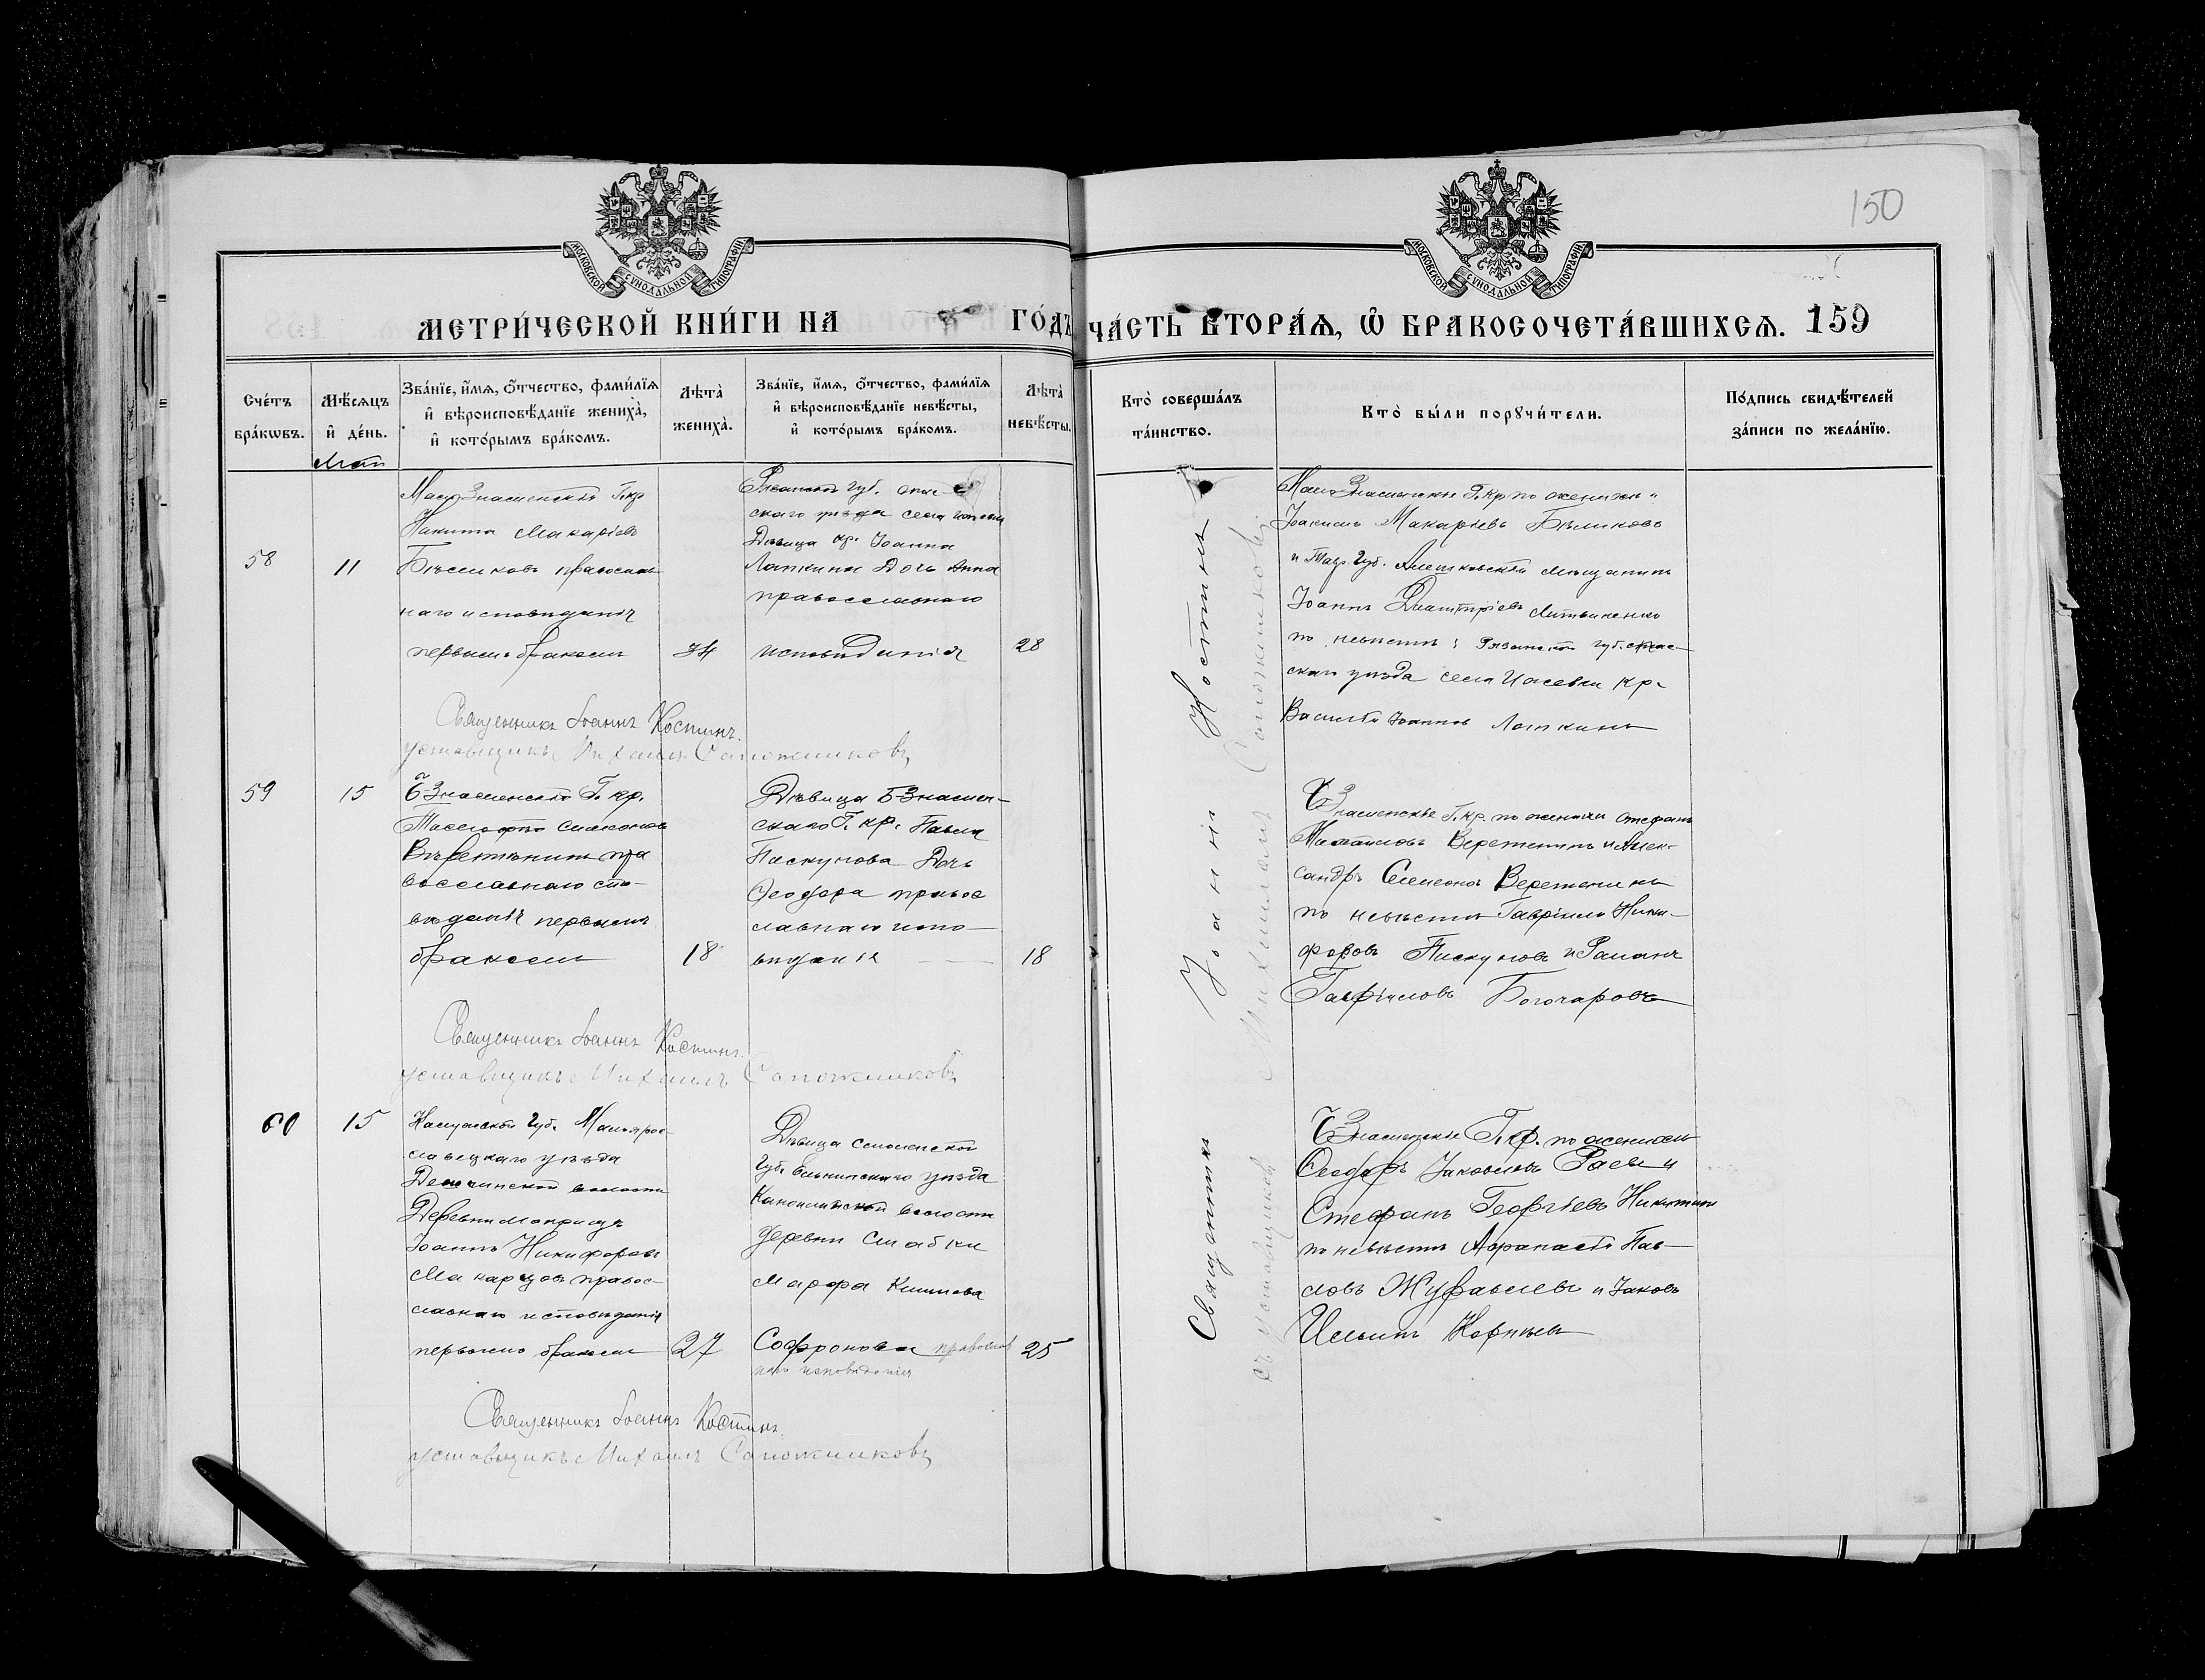 150
МОСКОВСКОЙ СѴНОДАЛЬНОЙ ТИПОГРАФІИ
МОСКОВСКОЙ СѴНОДАЛЬНОЙ ТИПОГРАФІИ
МЕТРИ́ЧЕСКОЙ КНИ́ГИ НА ГО́ДЪ
ЧА́СТЬ ВТОРА́Ѧ, Ѡ҆ БРАКОСОЧЕТА́ВШИХСѦ. 159
Сче́тъ бра́кѡвъ.
Мѣ́сѧцъ и҆ де́нь.
Зва́нїе, и҆́мѧ, ѻ҆́тчество, фами́лїѧ
и҆ вѣроисповѣ́данїе жениха̀,
и҆ кото́рымъ бра́комъ.
Лѣта̀ жениха̀.
Зва́нїе, и҆́мѧ, ѻ҆́тчество, фами́лїѧ
и҆ вѣроисповѣ́данїе невѣ́сты,
и҆ кото́рымъ бра́комъ.
Лѣта̀ невѣ́сты.
Кто̀ соверша́лъ та́инство.
Кто̀ бы́ли порꙋчи́тели.
По́дпись свидѣ́телей
за́писи по жела́нїю.
Май
58
11
Мало Знаменскій Г. кр
Никита Макаріевъ
Бѣликовъ православ
наго исповѣданія
первымъ бракомъ
34
Рязанской губ. спас-
скаго уѣзда села
Дѣвица кр. Іоанна
Лапкина Дочь Анна
православнаго
исповѣданія
28
Мало Знаменскіе Г. кр по женихѣ:
Іоакимъ Макаріевъ Бѣликовъ
и Тавр. Губ. Алешковскій мѣщанинъ
Іоаннъ Дмитріевъ Литвиненко
по невѣстѣ: Рязанской губ. спас-
скаго уѣзда села кр.
Василій Іоанновъ Лапкинъ
Священникъ Іоаннъ Костинъ.
уставщикъ Михаилъ Сапожниковъ
59
15
Б Знаменскій Г. кр.
Симеоновъ
Веретенинъ пра
вославнаго испо-
вѣданія первымъ
бракомъ
18
Дѣвица Б Знамен-
скаго Г. кр. Павла
Паскунова Дочь
Ѳеодора правос
лавнаго испо-
вѣданія
18
Б Знаменскіе Г. кр. по женихѣ Стефанъ
Михайловъ Веретенинъ и Алек-
сандръ Семеоновъ Веретенинъ
по невѣстѣ Гавріилъ Ники-
форовъ Пискуновъ и Романъ
Гавріиловъ Богочаровъ
Священникъ Іоаннъ Костинъ.
уставщикъ Михаилъ Сапожниковъ
60
15
Калужской Губ. Малояро-
славецкаго уѣзда
волости
Деревни
Іоаннъ Никифоровъ
Макарцовъ правос-
лавнаго исповѣданія
первымъ бракомъ
27
Дѣвица Смоленской
Губ. Ельнинскаго уѣзда
волости
деревни
Марфа Климова
Софронова православ
наго исповѣданія
25
Б Знаменскіе Г. кр. по женихѣ
Ѳеодоръ Іаковлевъ Раевъ и
Стефанъ Георгіевъ Никитинъ
по невѣстѣ Афанасій Пав-
ловъ Журавлевъ и Іаковъ
Ильинъ Корнѣевъ
Священникъ Іоаннъ Костинъ.
уставщикъ Михаилъ Сапожниковъ
Священникъ Іоаннъ Костинъ
съ уставщикомъ Михаиломъ Сапожниковымъ